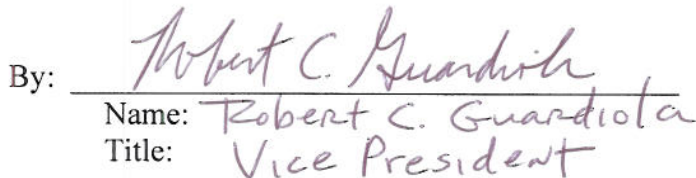 By: Robert C. Guardiola
Name: Robert C. Guardiola
Title: Vice President